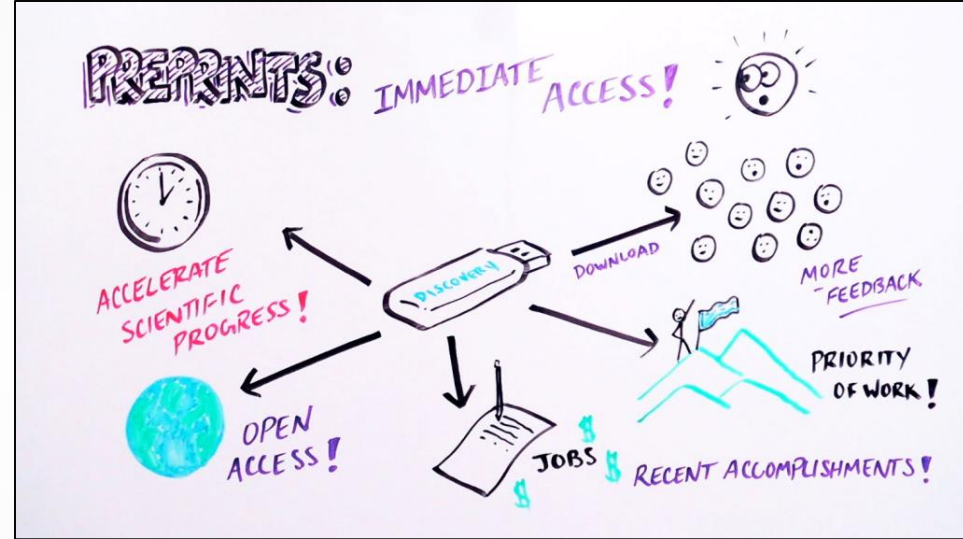 PREPRINTS: IMMEDIATE ACCESS!
ACCELERATE
SCIENTIFIC
PROGRESS!
DISCOVERY
DOWNLOAD
MORE
FEEDBACK
PRIORITY
OF WORK!
OPEN
ACCESS!
$
JOBS $
$
RECENT ACCOMPLISHMENTS!